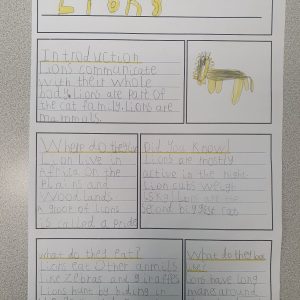 Lions
Introduction
Lions communicate
with their whole
body. Lions are part of
the cat family. Lions are
mammals.
Where do they live
Lion live in
Africa on the
Plains and
Woodland.
A group of lions
is called a pride
Did you know!
Lions are mostly
active in the night.
Lion cubs weigh
Lions are the
second biggest cat
what do they eat?
Lions eat other animals
like zebras and giraffes
Lions hunt by hiding in
What do they look
like?
Lions have long
manes around